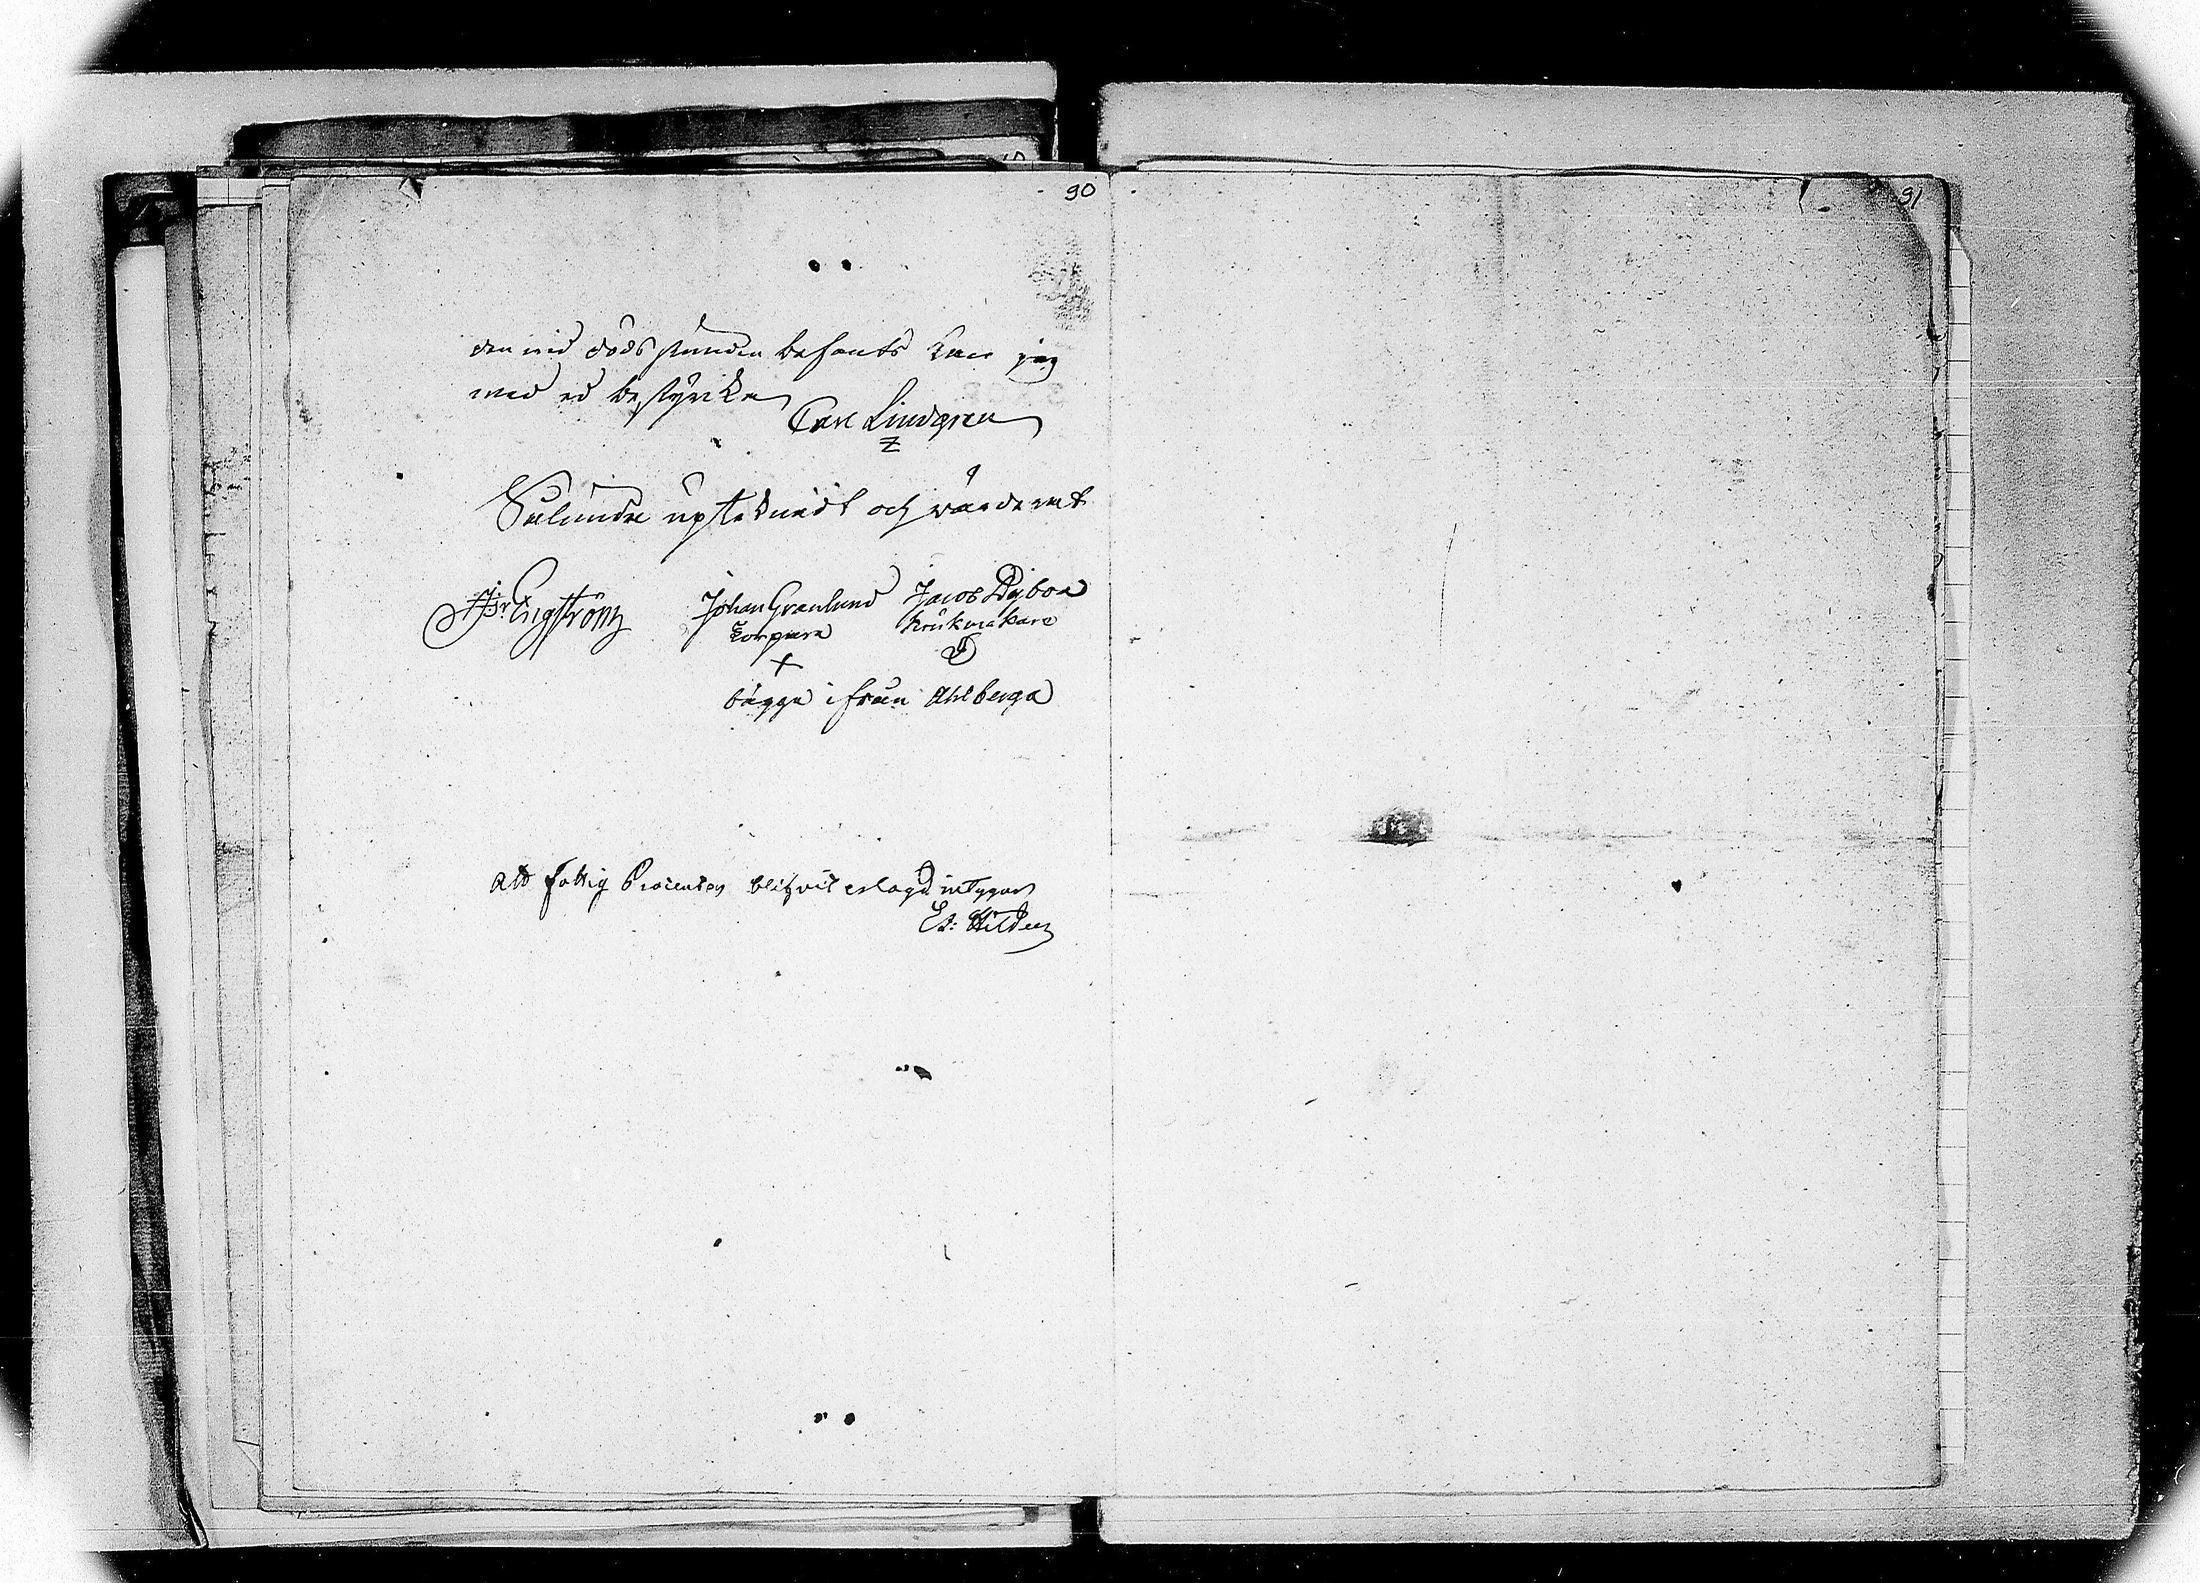 90
91
den wid dödsstunden befants kan jag
med ed bestyrcka
Carl Lindgren
Sålunda upteknadt och wärderat
Engström Johan Granlund Jacob Dyboa
Krukmakare
bägge ifrån Ahlberga
Att fattig Procenten blifvit erlagd intygar
Ed: Hilden